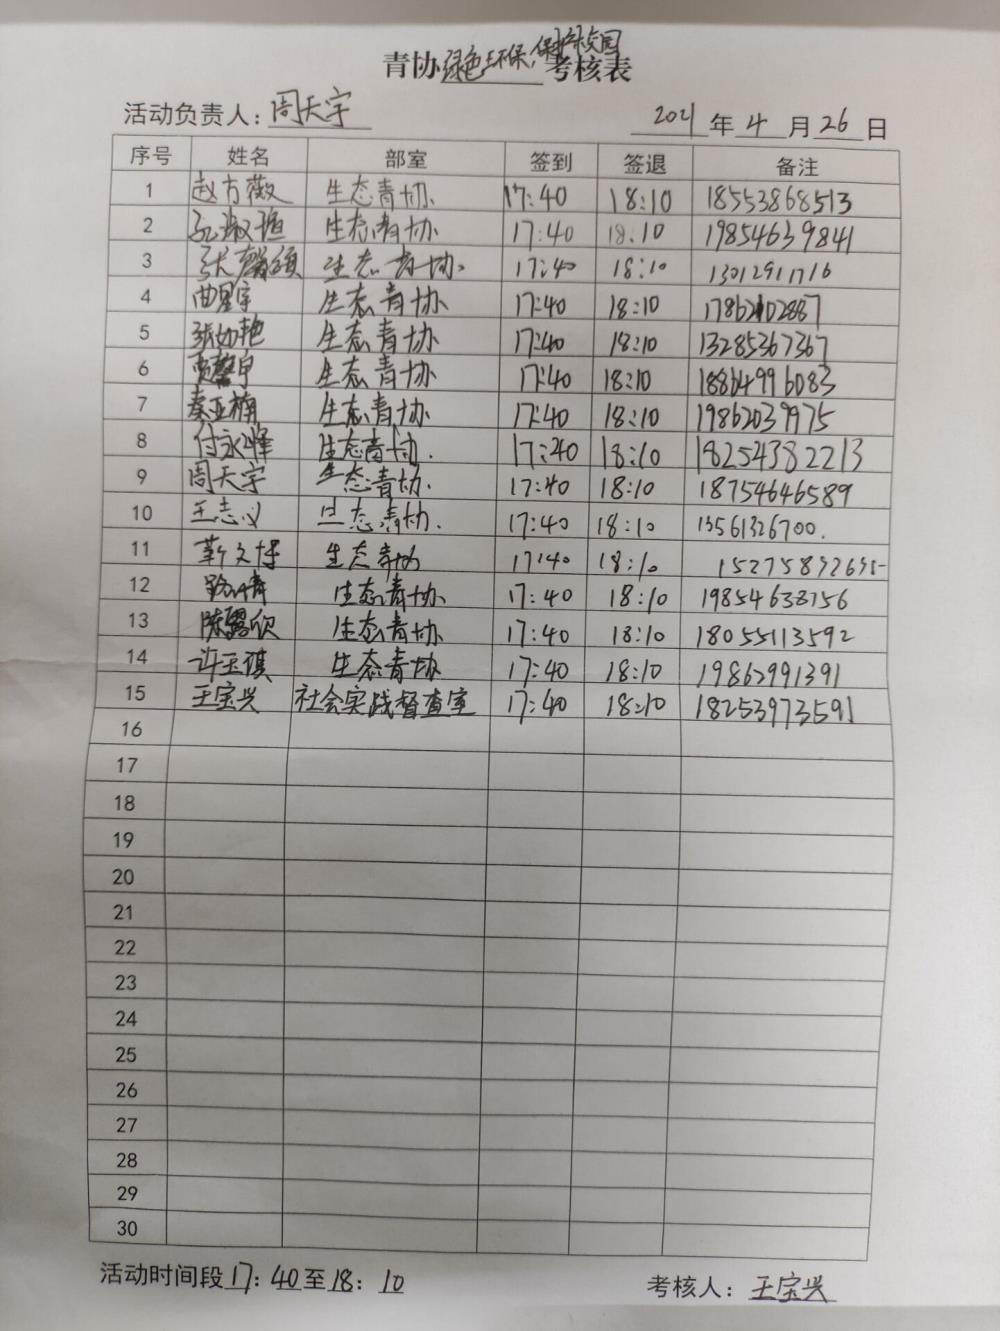 青协绿色环保,保护校园考核表
活动负责人:周天宇 2021年4月26日
序号 姓名 部室 签到 签退 备注
1 赵方薇 生态青协. 17:40 18:10 18553868513
2 生态青协 17:40 18:10 19854639841
3 生态青协. 17:40 18:10 13012911716
4 曲星宇 生态青协 17:40 18:10 17862102867
5 张如艳 生态青协 17:40 18:10 13285367367
6 贾馨宇 生态青协 17:40 18:10 18864996083
7 秦亚楠 生态青协 17:40 18:10 19862039975
8 付永峰 生态青协. 17:40 18:10 18254382213
9 周天宇 生态青协. 17:40 18:10 18754646589
10 王志义 生态青协. 17:40 18:10 13561326700.
11 靳文博 生态青协 17:40 18:10 15275892695
12 生态青协. 17:40 18:10 19854638756
13 陈露欣 生态青协. 17:40 18:10 18055113592
14 许玉琪 生态青协 17:40 18:10 19862991391
15 王宝兴 社会实践督查室 17:40 18:10 18253973591
16
17
18
19
20
21
22
23
24
25
26
27
28
29
30
活动时间段17:40至18:10 考核人:王宝兴